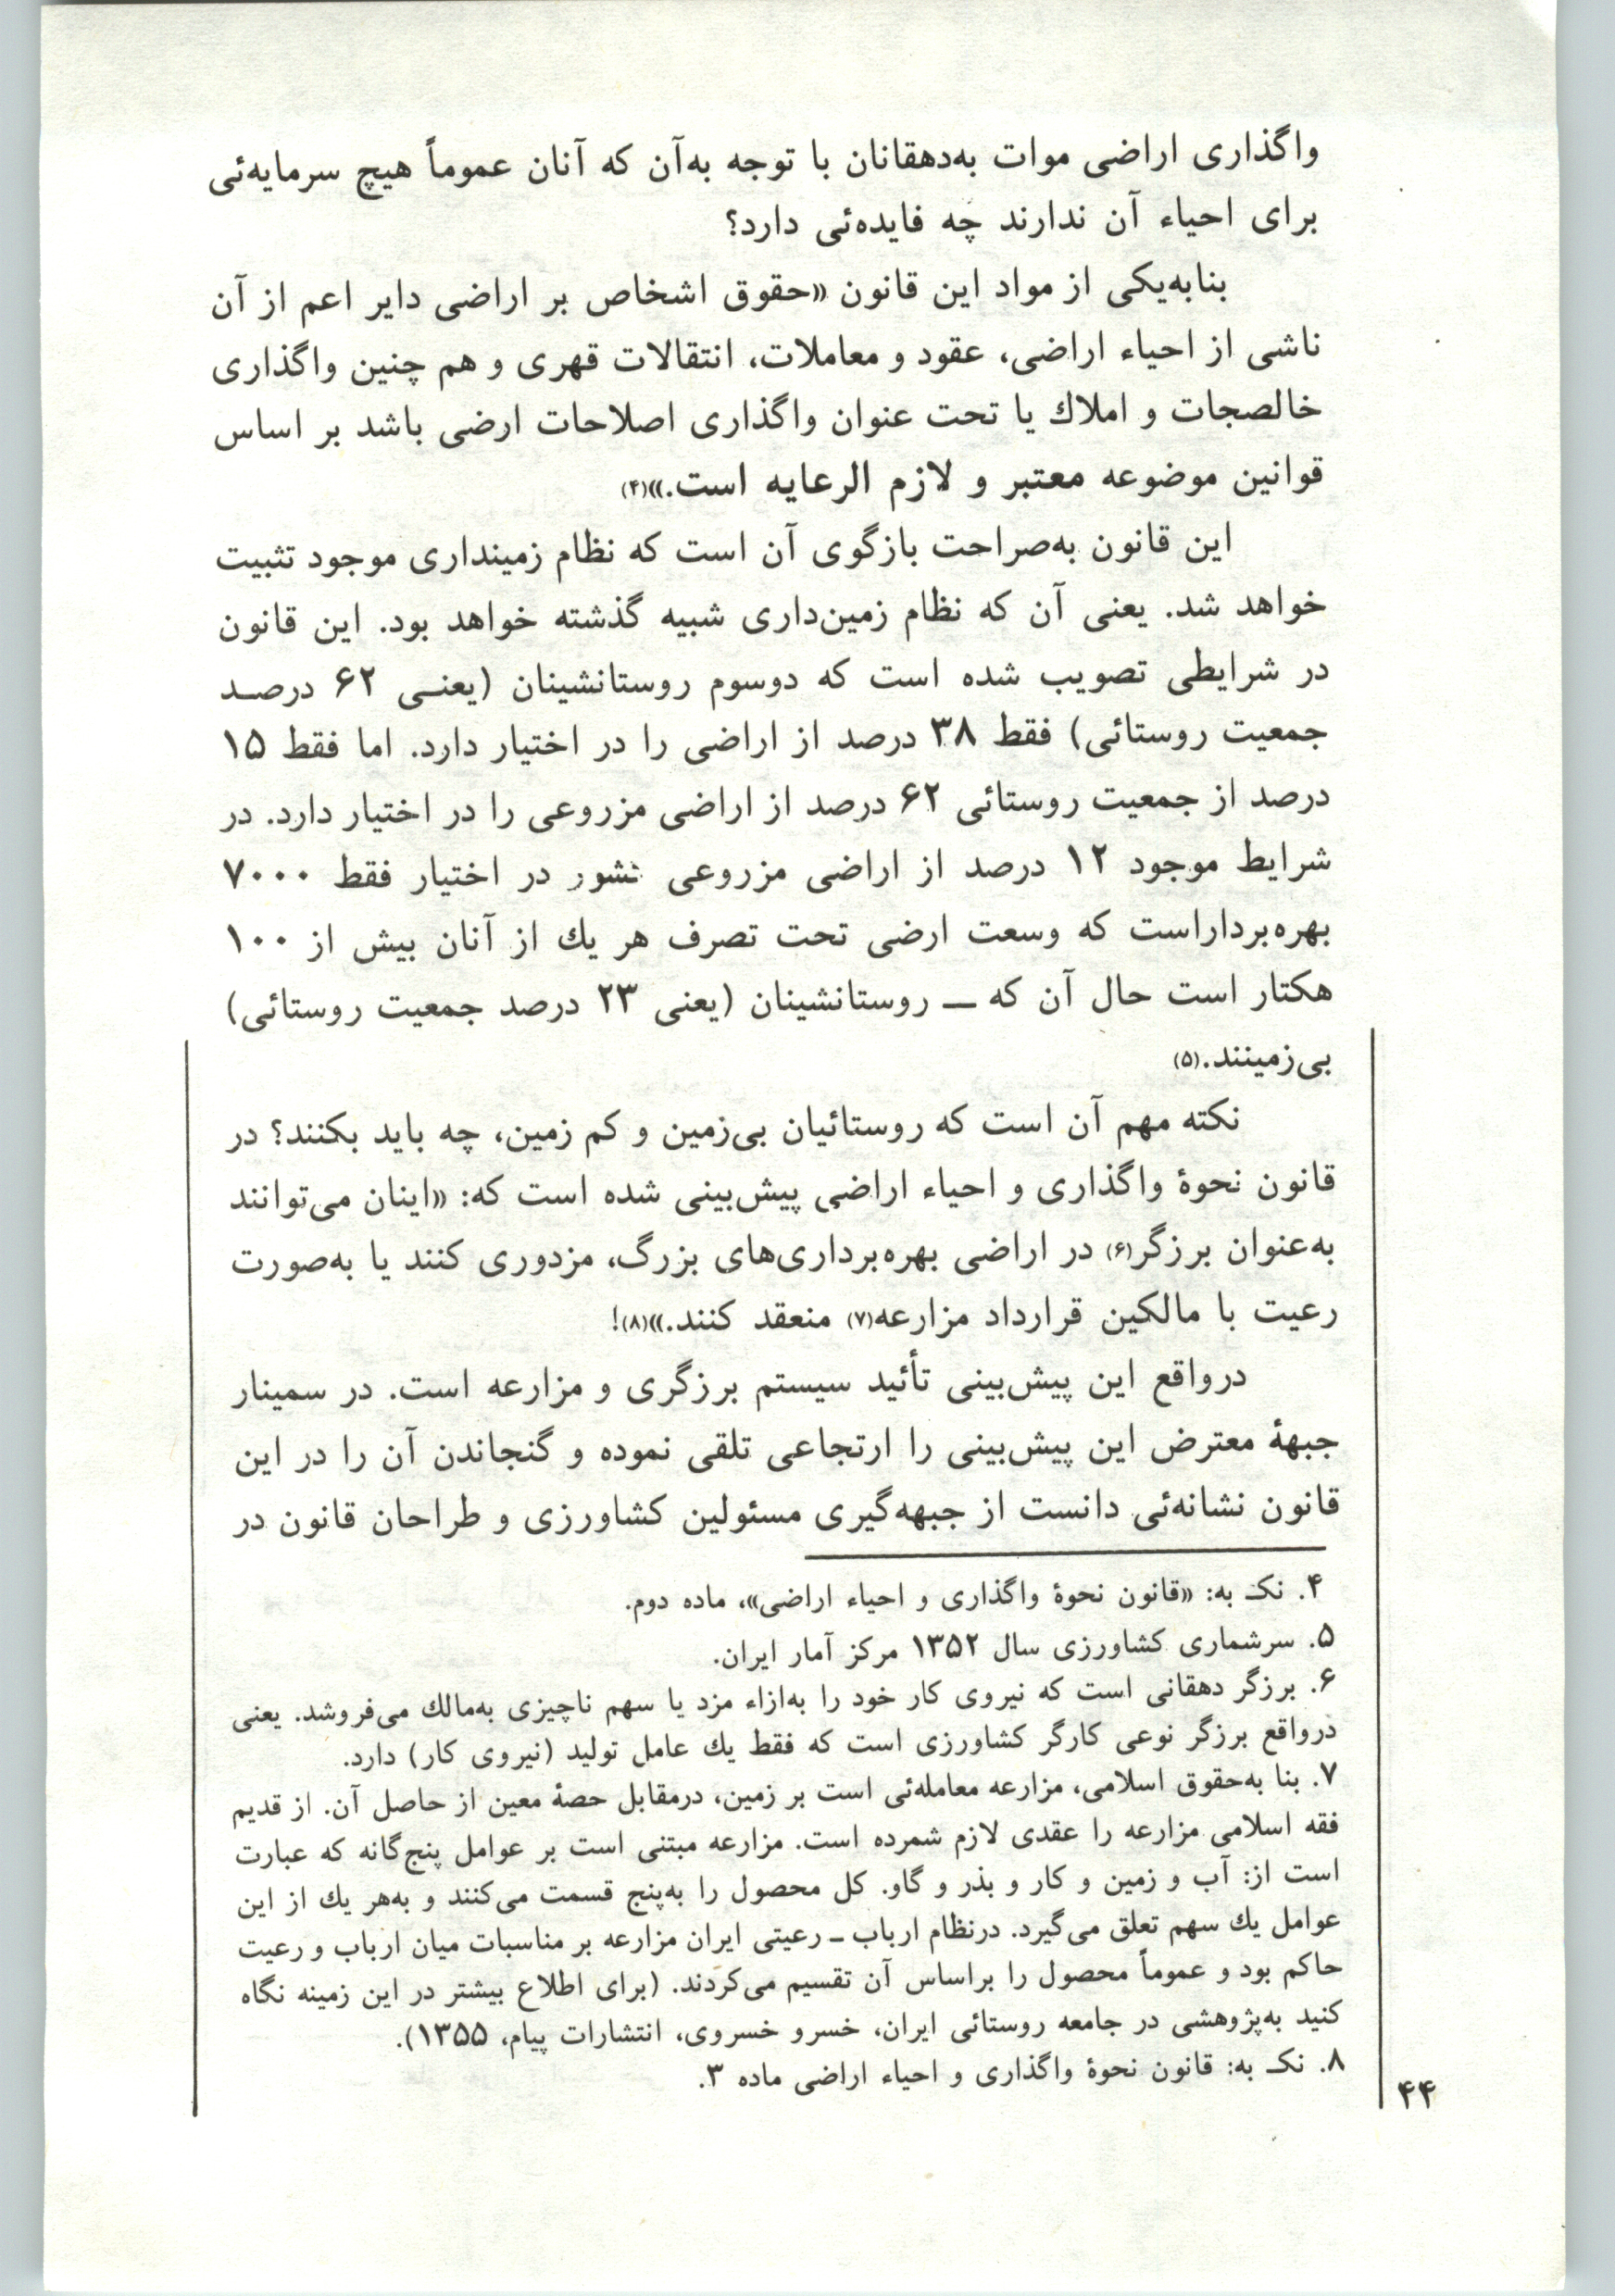 واگذاری اراضی موات به‌دهقانان با توجه به‌آن که آنان عموماً هیچ سرمایه‌ئی
برای احیاء آن ندارند چه فایده‌ئی دارد؟
بنابه‌یکی از مواد این قانون «حقوق اشخاص بر اراضی دایر اعم از آن
ناشی از احیاء اراضی، عقود و معاملات، انتقالات قهری و هم چنین واگذاری
خالصجات و املاك یا تحت عنوان واگذاری اصلاحات ارضی باشد بر اساس
قوانین موضوعه معتبر و لازم الرعایه است.»(۴)
این قانون به‌صراحت بازگوی آن است که نظام زمینداری موجود تثبیت
خواهد شد. یعنی آن که نظام زمین‌داری شبیه گذشته خواهد بود. این قانون
در شرایطی تصویب شده است که دوسوم روستانشینان (یعنـی ۶۲ درصـد
جمعیت روستائی) فقط ۳۸ درصد از اراضی را در اختیار دارد. اما فقط ۱۵
درصد از جمعیت روستائی ۶۲ درصد از اراضی مزروعی را در اختیار دارد. در
شرایط موجود ۱۲ درصد از اراضی مزروعی کشور در اختیار فقط ۷۰۰۰
بهره‌برداراست که وسعت ارضی تحت تصرف هر یك از آنان بیش از ۱۰۰
هکتار است حال آن که ــ روستانشینان (یعنی ۲۳ درصد جمعیت روستائی)
بی‌زمینند.(۵)
نکته مهم آن است که روستائیان بی‌زمین و کم زمین، چه باید بکنند؟ در
قانون نحوۀ واگذاری و احیاء اراضی پیش‌بینی شده است که: «اینان می‌توانند
به‌عنوان برزگر(۶) در اراضی بهره‌برداری‌های بزرگ، مزدوری کنند یا به‌صورت
رعیت با مالکین قرارداد مزارعه(۷) منعقد کنند.»(۸)!
درواقع این پیش‌بینی تأئید سیستم برزگری و مزارعه است. در سمینار
جبهۀ معترض این پیش‌بینی را ارتجاعی تلقی نموده و گنجاندن آن را در این
قانون نشانه‌ئی دانست از جبهه‌گیری مسئولین کشاورزی و طراحان قانون در
۴. نکـ به: «قانون نحوۀ واگذاری و احیاء اراضی»، ماده دوم.
۵. سرشماری کشاورزی سال ۱۳۵۲ مرکز آمار ایران.
۶. برزگر دهقانی است که نیروی کار خود را به‌ازاء مزد یا سهم ناچیزی به‌مالك می‌فروشد. یعنی
درواقع برزگر نوعی کارگر کشاورزی است که فقط یك عامل تولید (نیروی کار) دارد.
۷. بنا به‌حقوق اسلامی، مزارعه معامله‌ئی است بر زمین، درمقابل حصۀ معین از حاصل آن. از قدیم
فقه اسلامی مزارعه را عقدی لازم شمرده است. مزارعه مبتنی است بر عوامل پنج‌گانه که عبارت
است از: آب و زمین و کار و بذر و گاو. کل محصول را به‌پنج قسمت می‌کنند و به‌هر یك از این
عوامل یك سهم تعلق می‌گیرد. درنظام ارباب ـ رعیتی ایران مزارعه بر مناسبات میان ارباب و رعیت
حاکم بود و عموماً محصول را براساس آن تقسیم می‌کردند. (برای اطلاع بیشتر در این زمینه نگاه
کنید به‌پژوهشی در جامعه روستائی ایران، خسرو خسروی، انتشارات پیام، ۱۳۵۵).
۸. نکـ به: قانون نحوۀ واگذاری و احیاء اراضی ماده ۳.
۴۴